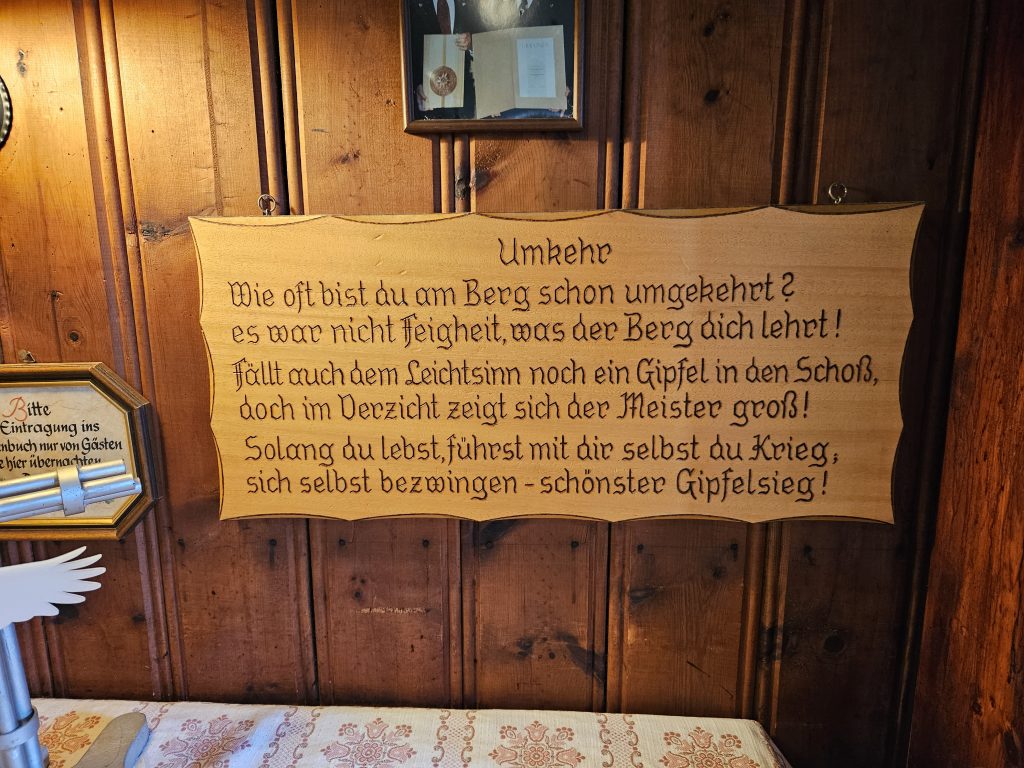 Umkehr
Wie oft bist du am Berg schon umgekehrt?
es war nicht Feigheit, was der Berg dich lehrt!
Fällt auch dem Leichtsinn noch ein Gipfel in den Schoß,
doch im Verzicht zeigt sich der Meister groß!
Solang du lebst, führst mit dir selbst du Krieg;
sich selbst bezwingen - schönster Gipfelsieg!
Bitte
Eintragung ins
nbuch nur von Gästen
e hier übernachten